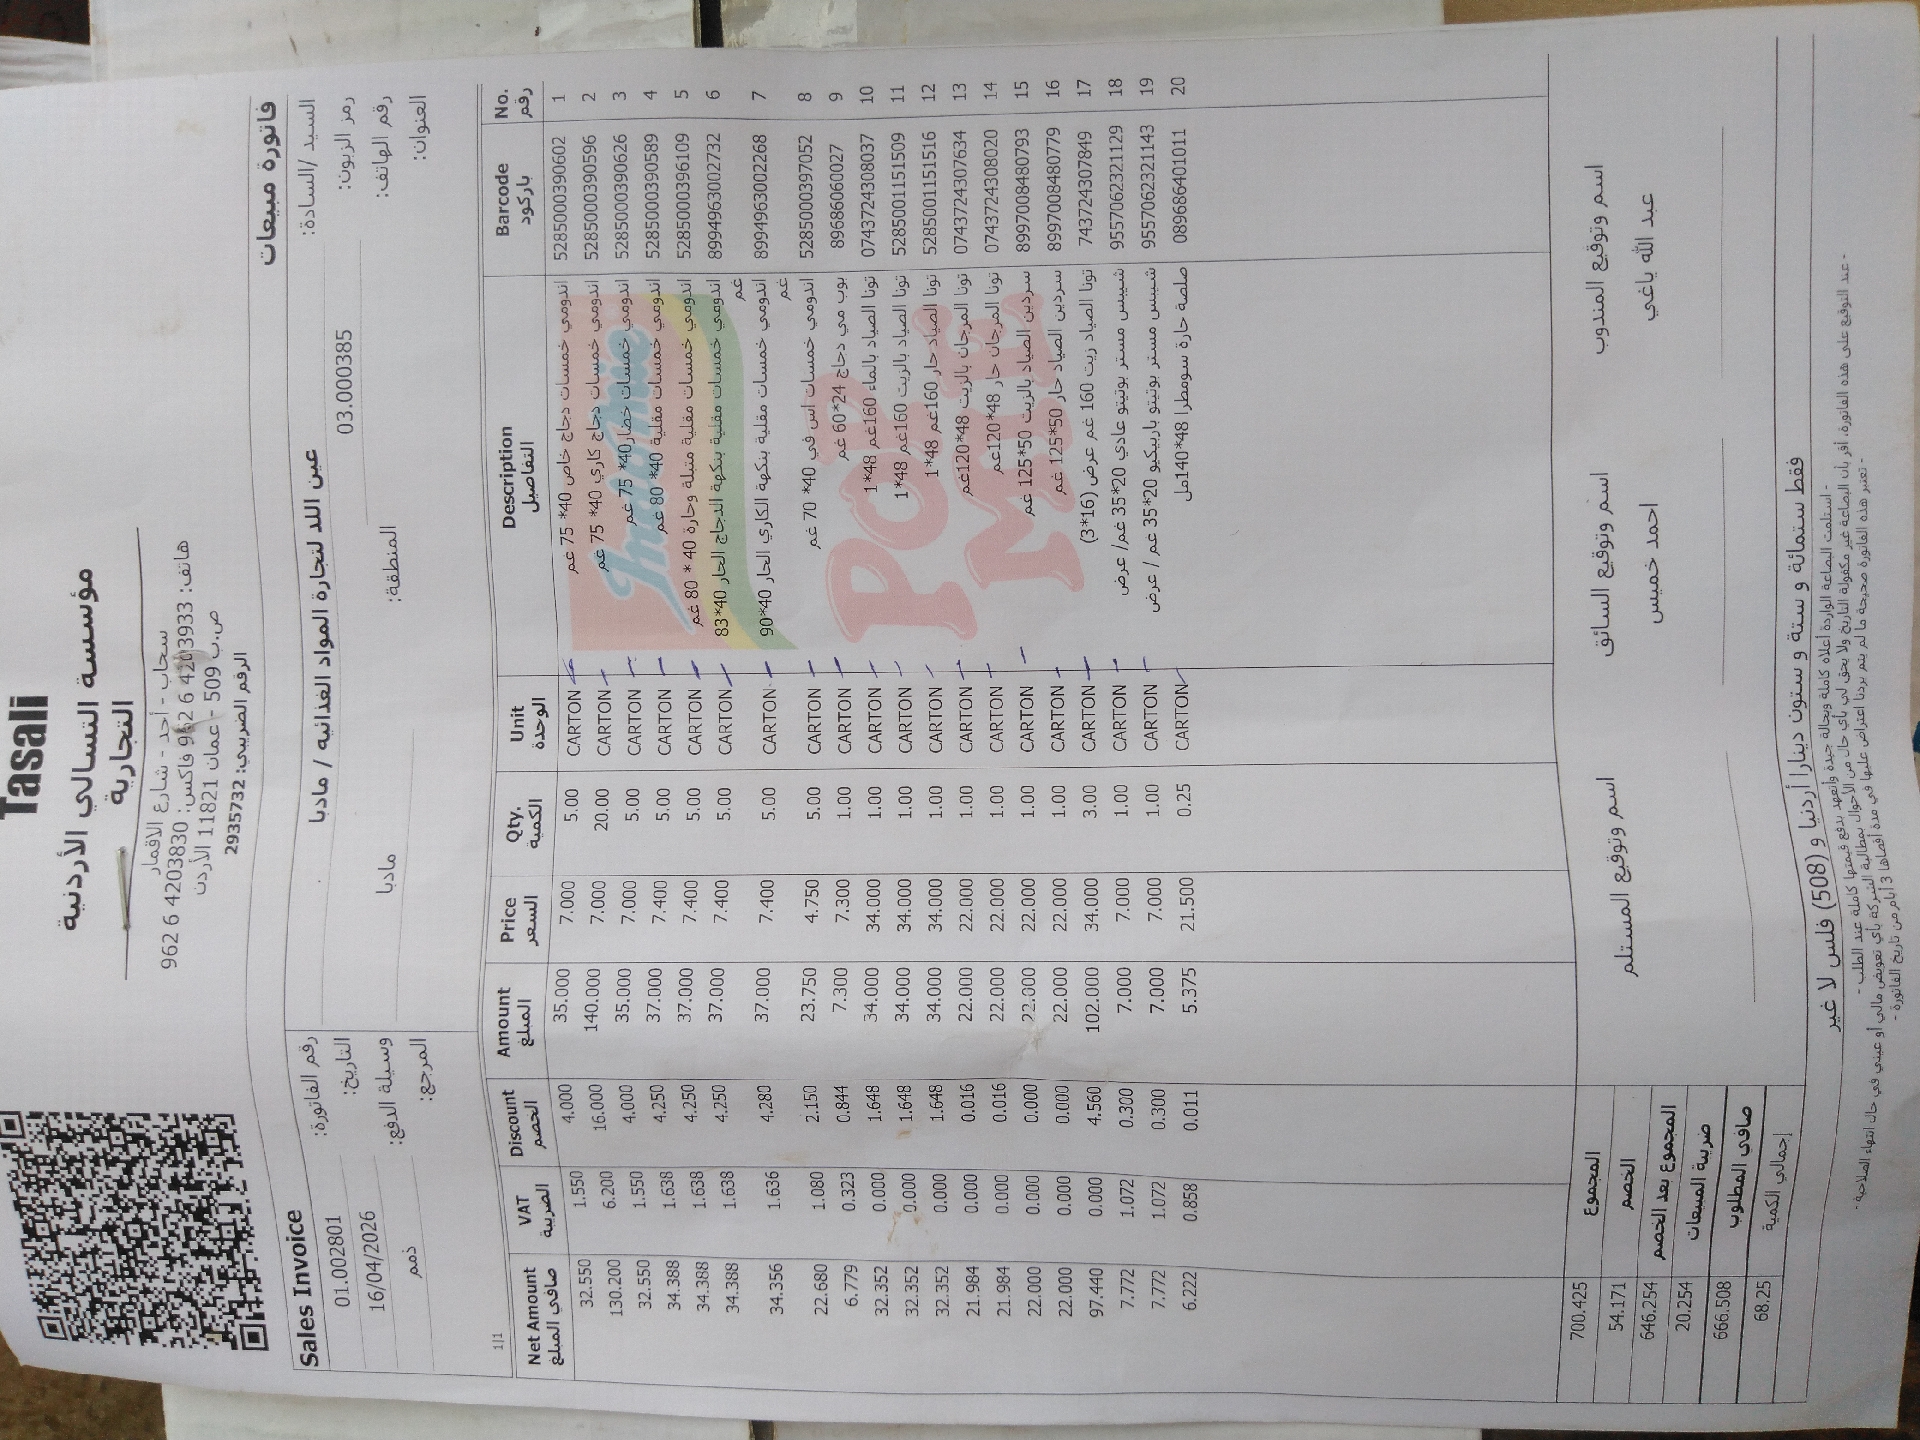 Tasali
مؤسسة التسالي الأردنية
التجارية
سحاب - أحد - شارع الاقمار
هاتف: 4203933 6 962 فاكس: 4203830 6 962
ص.ب 509 - عمان 11821 الأردن
الرقم الضريبي: 2935732
Sales Invoice فاتورة مبيعات
السيد /السادة: عين اللد لتجارة المواد الغذائيه / مادبا
رقم الفاتورة: 01.002801
رمز الزبون: 03.000385
التاريخ: 16/04/2026
رقم الهاتف:
المنطقة: مادبا
وسيلة الدفع: ذمم
العنوان:
المرجع:
1|1
No. Barcode Description Unit Qty. Price Amount Discount VAT Net Amount
رقم باركود التفاصيل الوحدة الكمية السعر المبلغ الخصم الضريبة صافي المبلغ
1 5285000390602 اندومي خمسات دجاج خاص 40* 75 غم CARTON 5.00 7.000 35.000 4.000 1.550 32.550
2 5285000390596 اندومي خمسات دجاج كاري 40* 75 غم CARTON 20.00 7.000 140.000 16.000 6.200 130.200
3 5285000390626 اندومي خمسات خضار 40* 75 غم CARTON 5.00 7.000 35.000 4.000 1.550 32.550
4 5285000390589 اندومي خمسات مقلية 40* 80 غم CARTON 5.00 7.400 37.000 4.250 1.638 34.388
5 5285000396109 اندومي خمسات مقلية متبلة وحارة 40 * 80 غم CARTON 5.00 7.400 37.000 4.250 1.638 34.388
6 8994963002732 اندومي خمسات مقلية بنكهة الدجاج الحار 40*83 غم CARTON 5.00 7.400 37.000 4.250 1.638 34.388
7 8994963002268 اندومي خمسات مقلية بنكهة الكاري الحار 40*90 غم CARTON 5.00 7.400 37.000 4.280 1.636 34.356
8 5285000397052 اندومي خمسات اس في 40* 70 غم CARTON 5.00 4.750 23.750 2.150 1.080 22.680
9 8968606002​7 بوب مي دجاج 24*60 غم CARTON 1.00 7.300 7.300 0.844 0.323 6.779
10 0743724308037 تونا الصياد بالماء 160غم 48*1 CARTON 1.00 34.000 34.000 1.648 0.000 32.352
11 5285001151509 تونا الصياد بالزيت 160غم 48*1 CARTON 1.00 34.000 34.000 1.648 0.000 32.352
12 5285001151516 تونا الصياد حار 160غم 48*1 CARTON 1.00 34.000 34.000 1.648 0.000 32.352
13 0743724307634 تونا المرجان بالزيت 48*120غم CARTON 1.00 22.000 22.000 0.016 0.000 21.984
14 0743724308020 تونا المرجان حار 48*120غم CARTON 1.00 22.000 22.000 0.016 0.000 21.984
15 8997008480793 سردين الصياد بالزيت 50*125 غم CARTON 1.00 22.000 22.000 0.000 0.000 22.000
16 8997008480779 سردين الصياد حار 50*125 غم CARTON 1.00 22.000 22.000 0.000 0.000 22.000
17 743724307849 تونا الصياد زيت 160 غم عرض (16*3) CARTON 3.00 34.000 102.000 4.560 0.000 97.440
18 9557062321129 شيبس مستر بوتيتو عادي 20*35 غم/ عرض CARTON 1.00 7.000 7.000 0.300 1.072 7.772
19 9557062321143 شيبس مستر بوتيتو باربيكيو 20*35 غم / عرض CARTON 1.00 7.000 7.000 0.300 1.072 7.772
20 089686401011 صلصة حارة سومطرا 48*140مل CARTON 0.25 21.500 5.375 0.011 0.858 6.222
Indomie
POP
MIE
اسم وتوقيع المندوب اسم وتوقيع السائق اسم وتوقيع المستلم
عبد الله ياغي احمد خميس
المجموع 700.425
الخصم 54.171
المجموع بعد الخصم 646.254
ضريبة المبيعات 20.254
صافي المطلوب 666.508
إجمالي الكمية 68.25
فقط ستمائة و ستة و ستون دينارا أردنيا و (508) فلس لا غير
- استلمت البضاعة الواردة أعلاه كاملة وبحالة جيدة وأتعهد بدفع قيمتها كاملة عند الطلب -
- عند التوقيع على هذه الفاتورة، أقر بأن البضاعة غير مكفولة التاريخ ولا يحق لي بأي حال من الأحوال بمطالبة الشركة بأي تعويض مالي أو عيني في حال انتهاء الصلاحية -
- تعتبر هذه الفاتورة صحيحة ما لم يتم بردنا اعتراض عليها في مدة أقصاها 3 أيام من تاريخ الفاتورة -